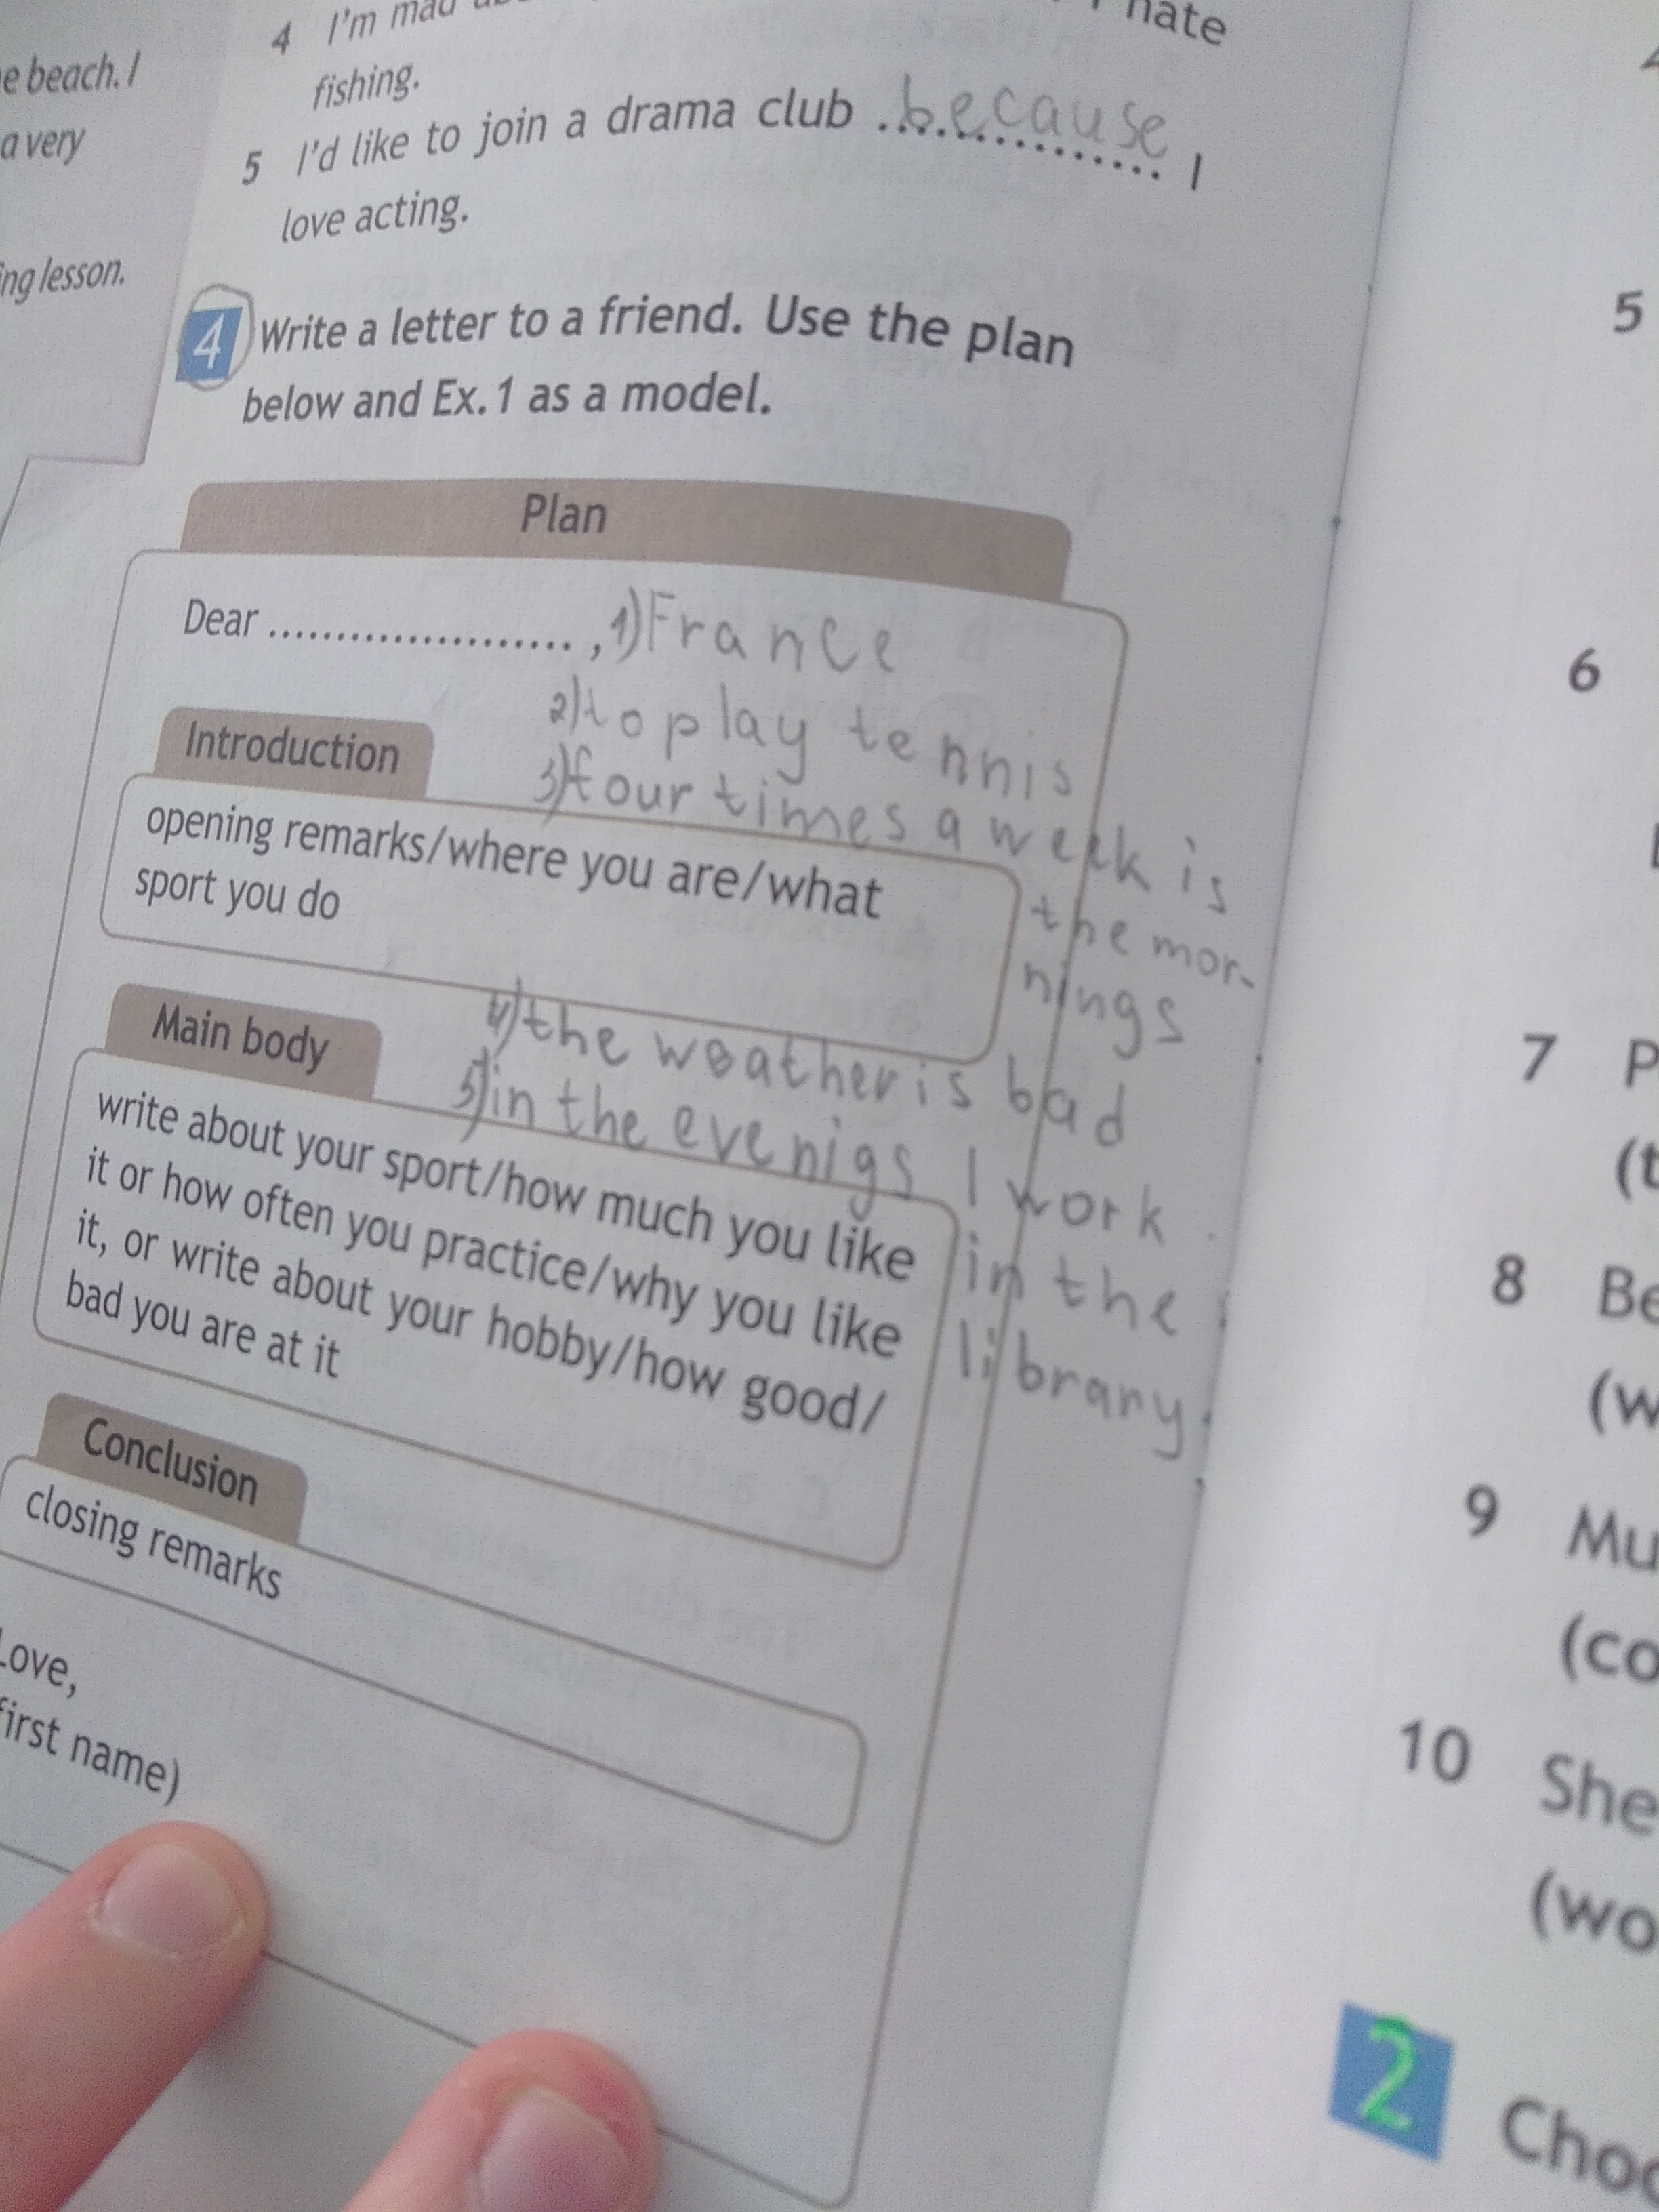 e beach. I
a very
ing lesson.
4 I'm mad
hate
fishing.
5 I'd like to join a drama club because I
love acting.
4 Write a letter to a friend. Use the plan
below and Ex. 1 as a model.
Plan
Dear ......................, 1) France
2) to play tennis
3) four times a week is
the mor-
nings
Introduction
opening remarks/where you are/what
sport you do
4) the weather is bad
5) in the evenigs I work
in the
library.
Main body
write about your sport/how much you like
it or how often you practice/why you like
it, or write about your hobby/how good/
bad you are at it
Conclusion
closing remarks
Love,
first name)
5
6
7 P
(t
8 Be
(w
9 Mu
(co
10 She
(wo
2 Choo